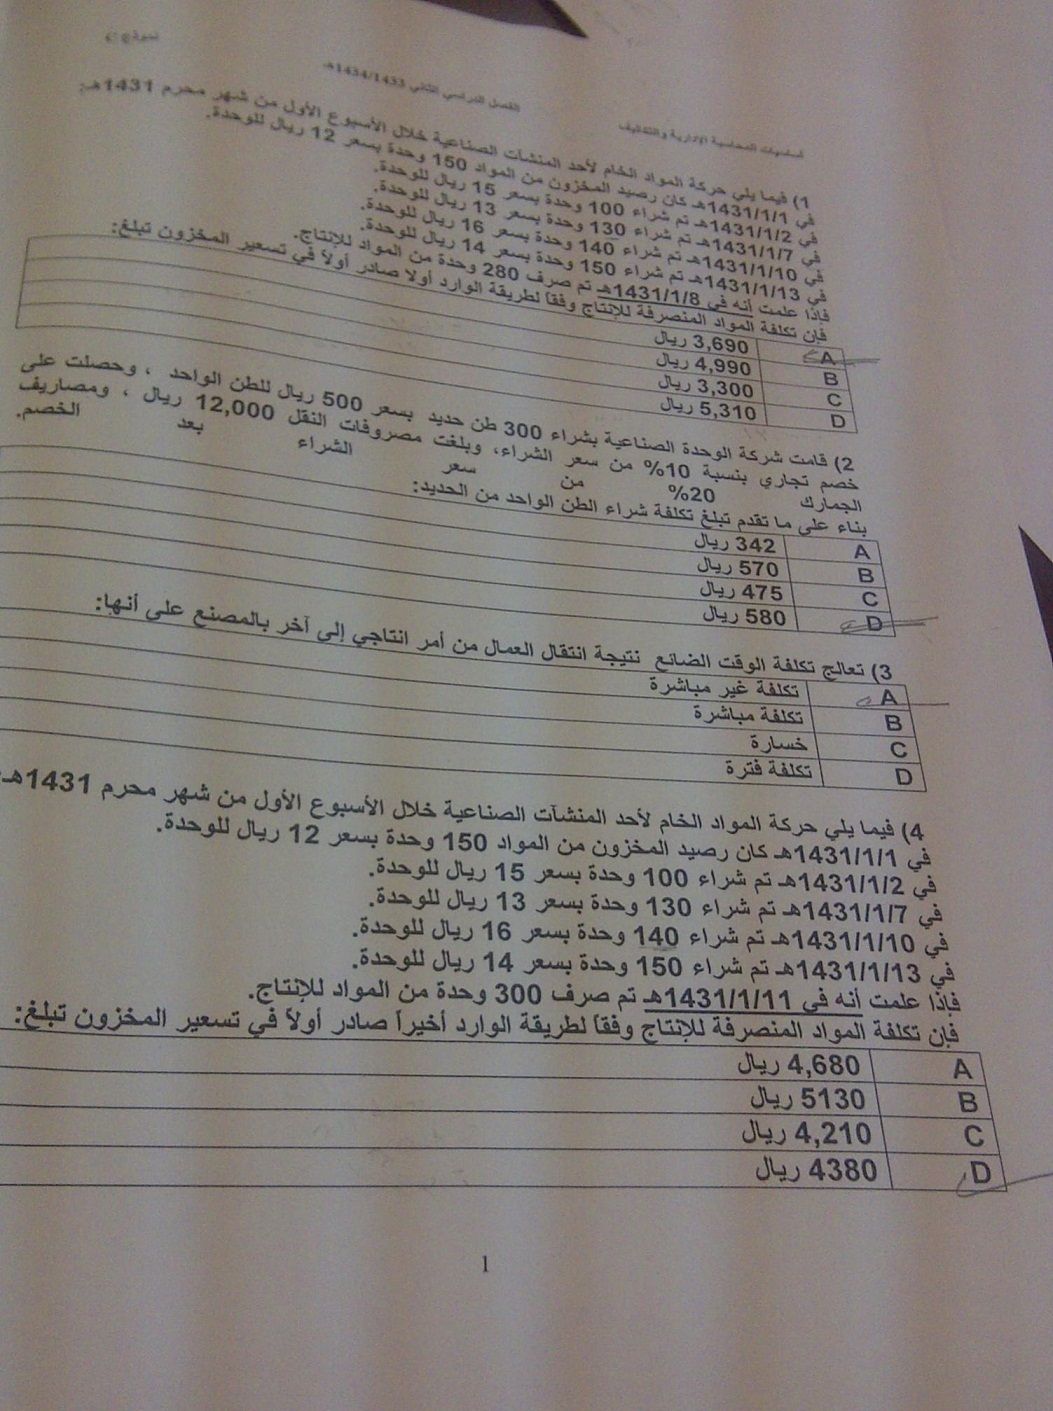 نموذج
الفصل الدراسي الثاني 1434/1433هـ
أساسيات المحاسبة الإدارية والتكاليف
1) فيما يلي حركة المواد الخام لأحد المنشآت الصناعية خلال الأسبوع الأول من شهر محرم 1431هـ:
في 1431/1/1هـ كان رصيد المخزون من المواد 150 وحدة بسعر 12 ريال للوحدة.
في 1431/1/2هـ تم شراء 100 وحدة بسعر 15 ريال للوحدة.
في 1431/1/7هـ تم شراء 130 وحدة بسعر 13 ريال للوحدة.
في 1431/1/10هـ تم شراء 140 وحدة بسعر 16 ريال للوحدة.
في 1431/1/13هـ تم شراء 150 وحدة بسعر 14 ريال للوحدة.
فإذا علمت أنه في 1431/1/8هـ تم صرف 280 وحدة من المواد للإنتاج.
فإن تكلفة المواد المنصرفة للإنتاج وفقاً لطريقة الوارد أولا صادر أولاً في تسعير المخزون تبلغ:
A 3,690 ريال
B 4,990 ريال
C 3,300 ريال
D 5,310 ريال
2) قامت شركة الوحدة الصناعية بشراء 300 طن حديد بسعر 500 ريال للطن الواحد ، وحصلت على
خصم تجاري بنسبة 10% من سعر الشراء، وبلغت مصروفات النقل 12,000 ريال ، ومصاريف
الجمارك 20% من سعر الشراء بعد الخصم.
بناء على ما تقدم تبلغ تكلفة شراء الطن الواحد من الحديد:
A 342 ريال
B 570 ريال
C 475 ريال
D 580 ريال
3) تعالج تكلفة الوقت الضائع نتيجة انتقال العمال من أمر انتاجي إلى آخر بالمصنع على أنها:
A تكلفة غير مباشرة
B تكلفة مباشرة
C خسارة
D تكلفة فترة
4) فيما يلي حركة المواد الخام لأحد المنشآت الصناعية خلال الأسبوع الأول من شهر محرم 1431هـ:
في 1431/1/1هـ كان رصيد المخزون من المواد 150 وحدة بسعر 12 ريال للوحدة.
في 1431/1/2هـ تم شراء 100 وحدة بسعر 15 ريال للوحدة.
في 1431/1/7هـ تم شراء 130 وحدة بسعر 13 ريال للوحدة.
في 1431/1/10هـ تم شراء 140 وحدة بسعر 16 ريال للوحدة.
في 1431/1/13هـ تم شراء 150 وحدة بسعر 14 ريال للوحدة.
فإذا علمت أنه في 1431/1/11هـ تم صرف 300 وحدة من المواد للإنتاج.
فإن تكلفة المواد المنصرفة للإنتاج وفقاً لطريقة الوارد أخيراً صادر أولاً في تسعير المخزون تبلغ:
A 4,680 ريال
B 5130 ريال
C 4,210 ريال
D 4380 ريال
1